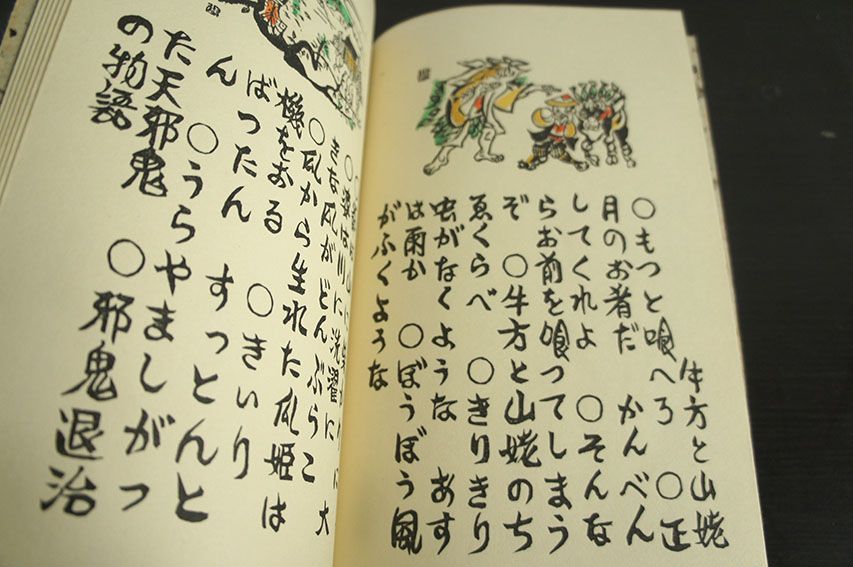 牛方と山姥
○もつと喰へろ　○正
月のお肴だ　かんべん
してくれよ　○そんな
らお前を喰つてしまう
ぞ　○牛方と山姥のち
ゑくらべ　○きりきり
虫がなくような　あす
は雨か　○ぼうぼう風
がふくような
○婆は川に洗濯に　大
きな瓜がどんぶらこ
○瓜から生れた瓜姫は
機をおる　○きいり
ばつたん　すつとんと
ん　○うらやましがつ
た天邪鬼　○邪鬼退治
の物語